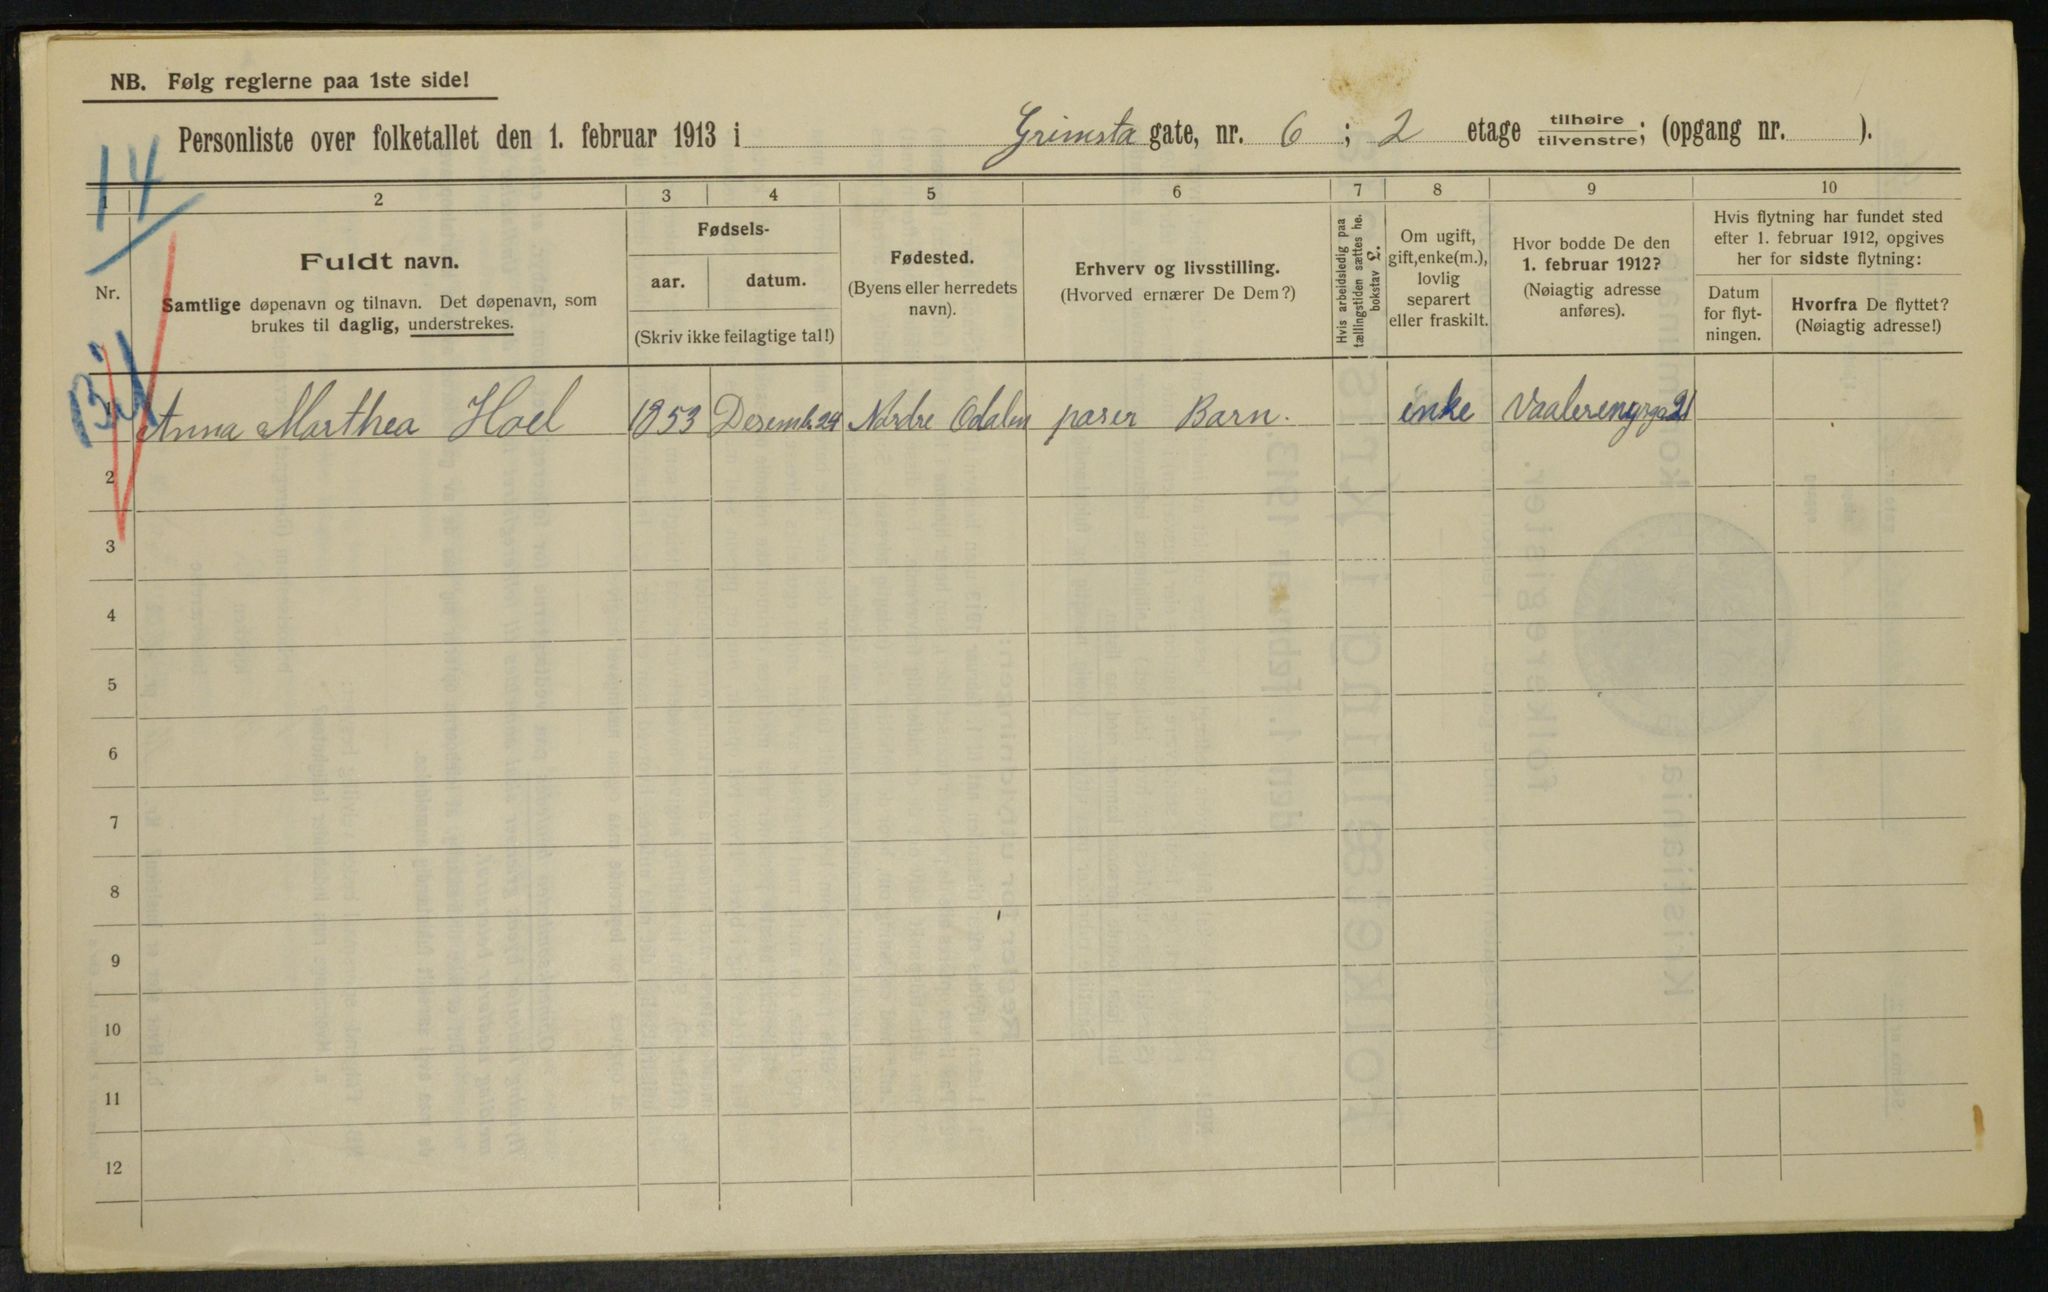 NB. Følg reglerne paa 1ste side!
Personliste over folketallet den 1. februar 1913 i Grimsta gate, nr. 6 ; 2 etage tilhøire/tilvenstre; (opgang nr. ).
14
1 2 3 4 5 6 7 8 9 10
Nr.
Fuldt navn.
Samtlige døpenavn og tilnavn. Det døpenavn, som
brukes til daglig, understrekes.
Fødsels-
aar. datum.
(Skriv ikke feilagtige tal!)
Fødested.
(Byens eller herredets
navn).
Erhverv og livsstilling.
(Hvorved ernærer De Dem?)
Hvis arbeidsledig paa
tællingstiden sættes he.
bokstav L.
Om ugift,
gift, enke(m.),
lovlig
separert
eller fraskilt.
Hvor bodde De den
1. februar 1912?
(Nøiagtig adresse
anføres).
Hvis flytning har fundet sted
efter 1. februar 1912, opgives
her for sidste flytning:
Datum
for flyt-
ningen.
Hvorfra De flyttet?
(Nøiagtig adresse!)
1 Anna Marthea Hoel 1853 Desemb. 24 Nordre Odalen paser Barn. enke Vaalerengga 21
2
3
4
5
6
7
8
9
10
11
12